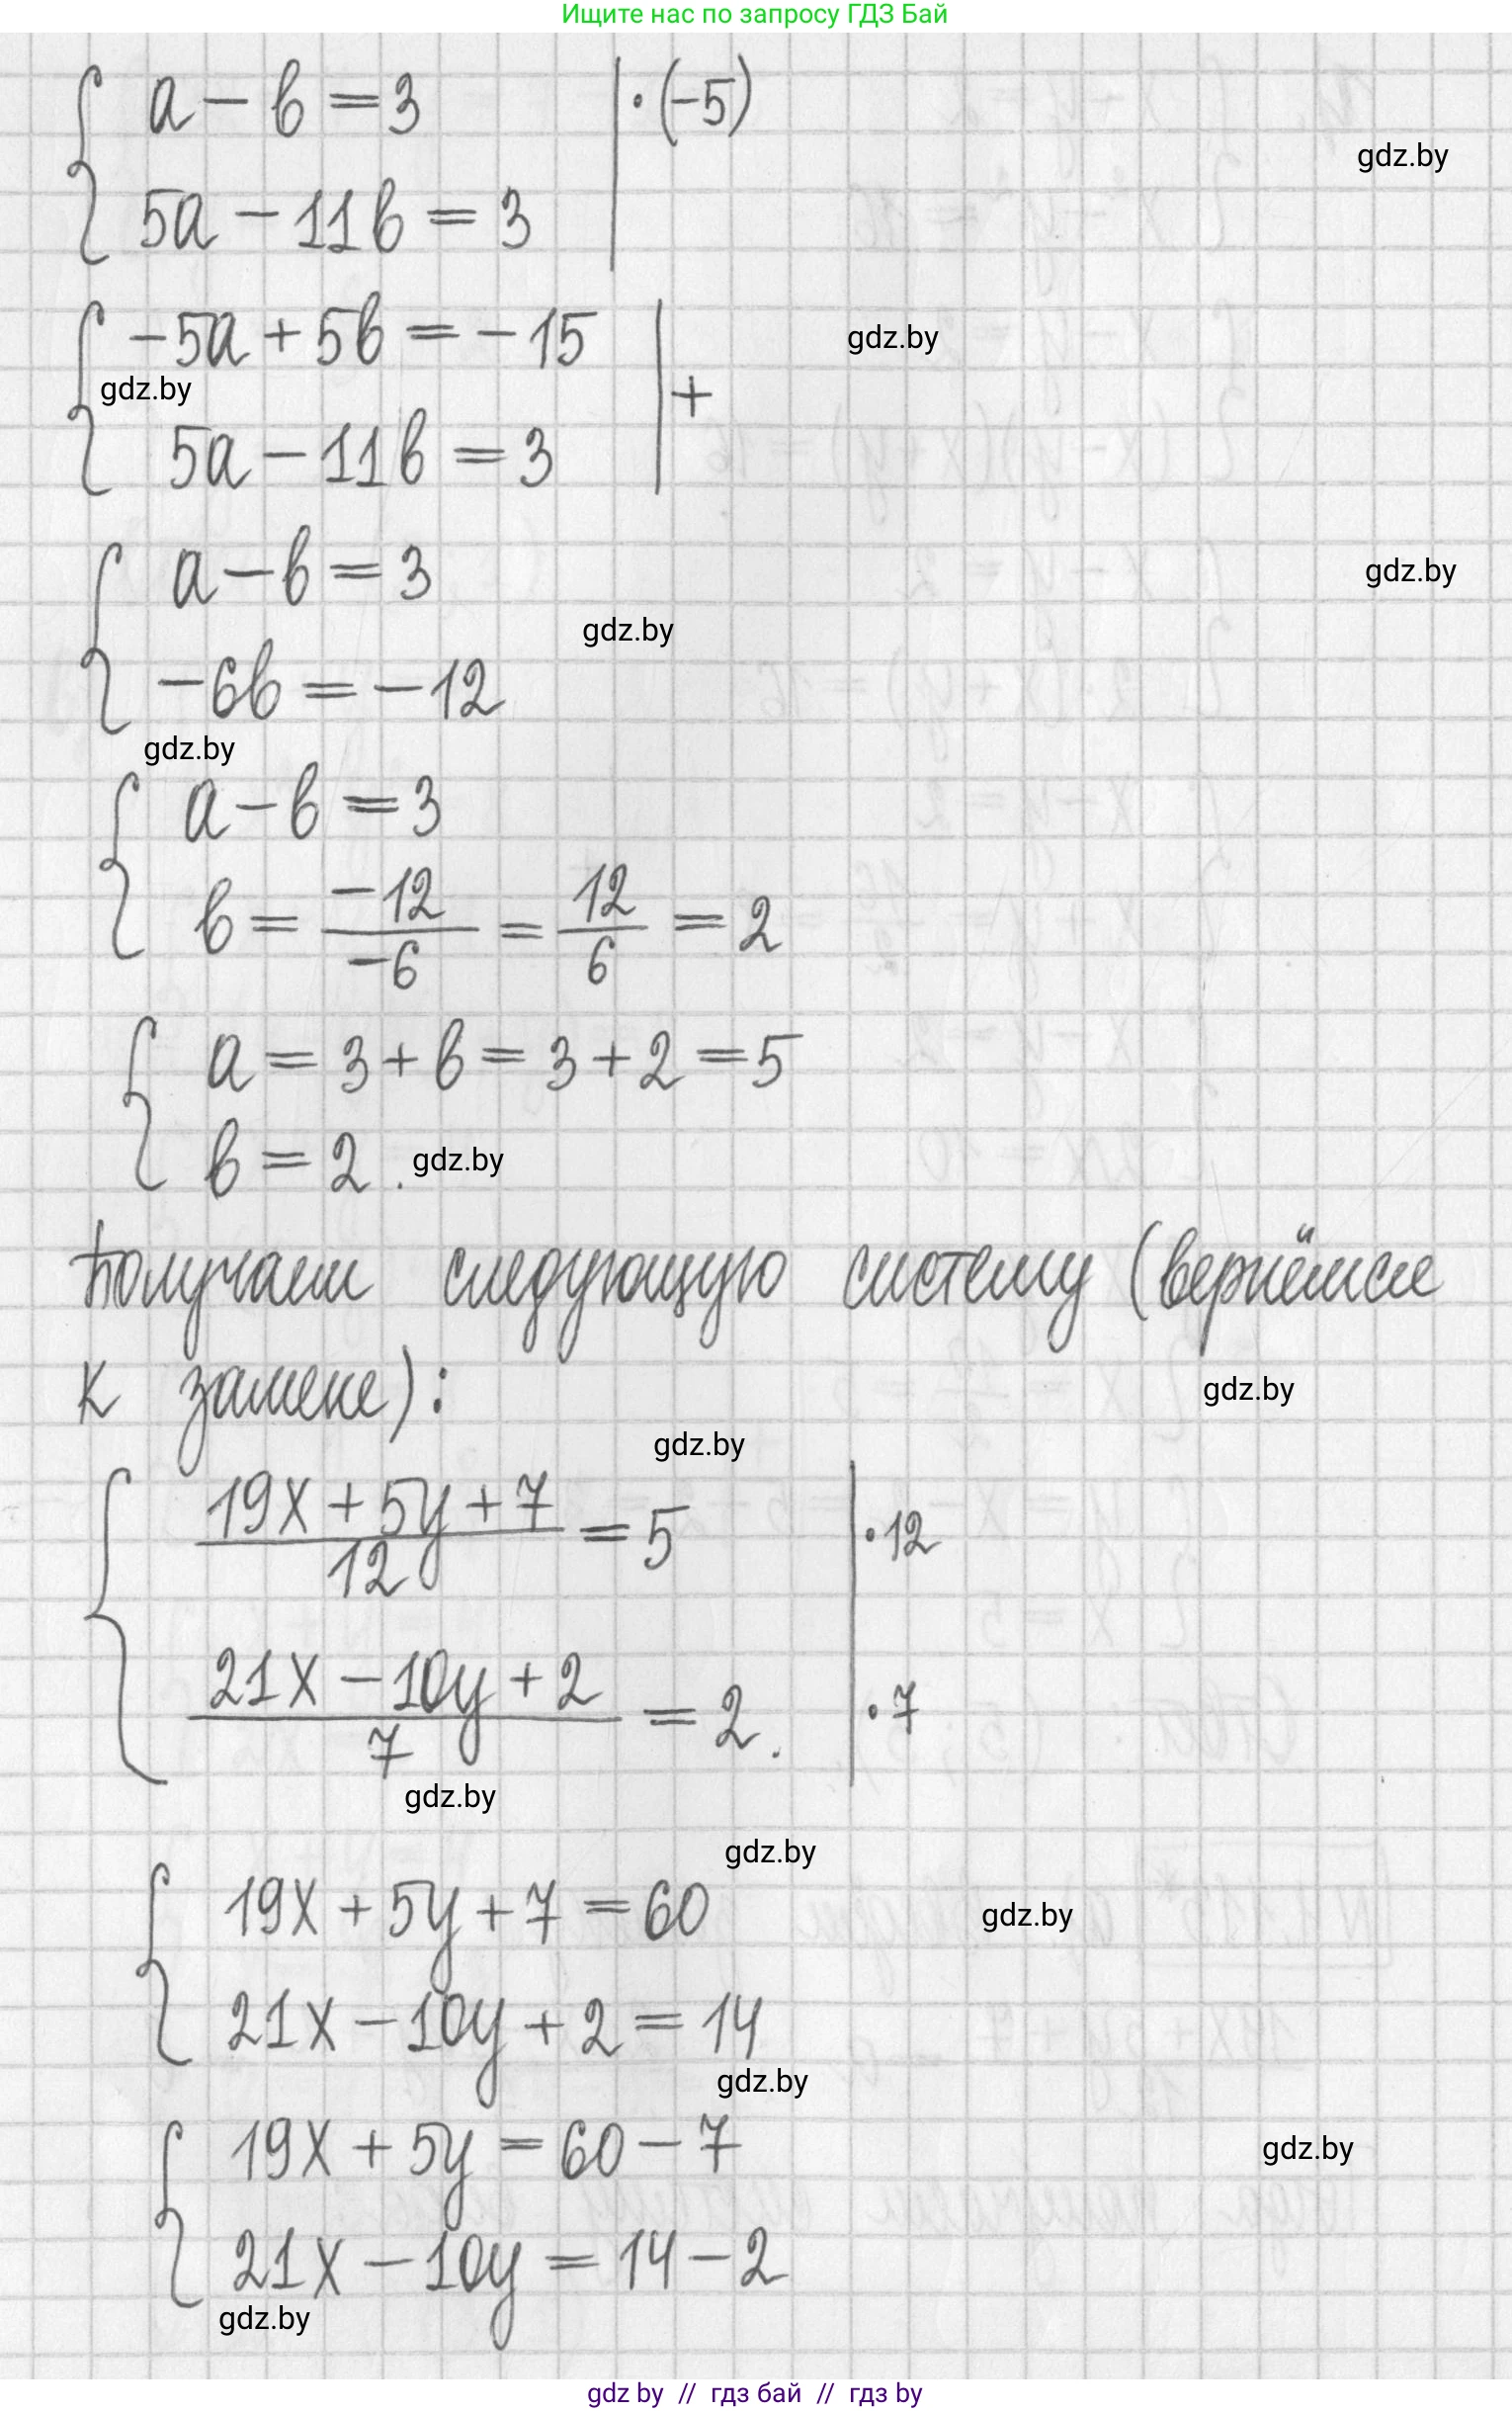 Ищите нас по запросу ГДЗ Бай
a - b = 3 | · (-5)
gdz.by
5a - 11b = 3
-5a + 5b = -15
gdz.by
gdz.by
+
5a - 11b = 3
a - b = 3
gdz.by
gdz.by
-6b = -12
gdz.by
a - b = 3
b = -12/-6 = 12/6 = 2
a = 3 + b = 3 + 2 = 5
b = 2. gdz.by
Получаем следующую систему (вернёмся
к замене):
gdz.by
gdz.by
(19x + 5y + 7)/12 = 5 | · 12
(21x - 10y + 2)/7 = 2. | · 7
gdz.by
gdz.by
19x + 5y + 7 = 60
gdz.by
21x - 10y + 2 = 14
gdz.by
19x + 5y = 60 - 7
gdz.by
21x - 10y = 14 - 2
gdz.by
gdz by // гдз бай // гдз by